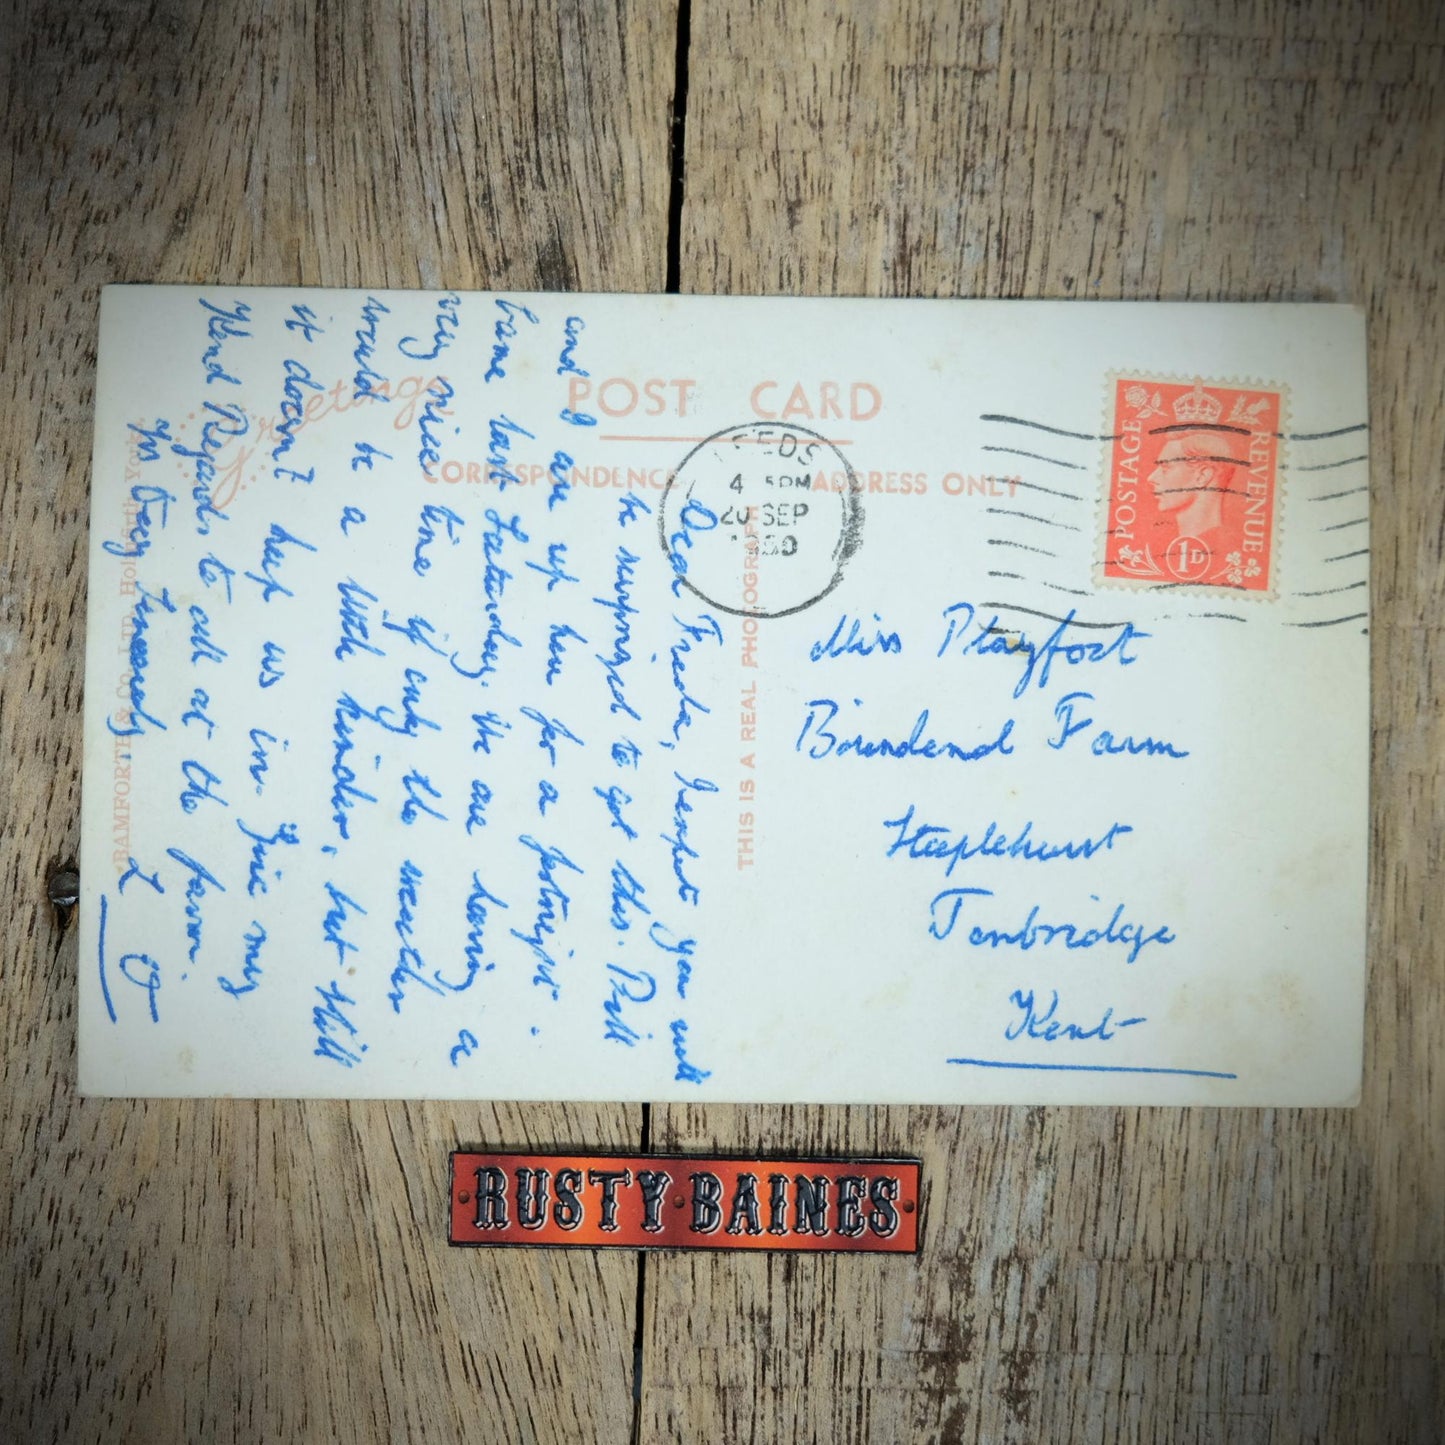 POST CARD
Greetings
CORRESPONDENCE
ADDRESS ONLY
LEEDS
4 5PM
20 SEP
1950
POSTAGE
REVENUE
1D
THIS IS A REAL PHOTOGRAPH
BAMFORTH & Co. LTD. Holmfirth York
Miss Playfoot
Staplehurst
Tonbridge
Kent
Dear Freda, I expect you will
be surprised to get this. Bill
and I are up here for a fortnight.
Came last Saturday. We are having a
very nice time if only the weather
would be a little kinder, but still
it doesn't keep us in. Give my
Kind Regards to all at the farm.
Yrs Very Sincerely
RUSTY BAINES